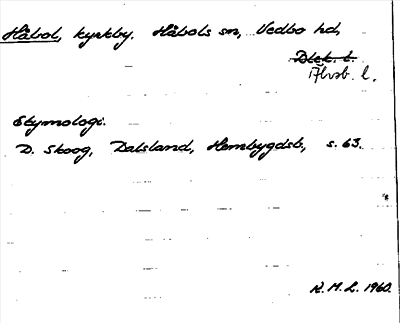 Håbol, kyrkby. Håbols sn, Vedbo hd,
Dlsk. l.
Älvsb. l.
Etymologi.
D. Skoog, Dalsland, Hembygdsb., s. 63.
K. M. L. 1960.